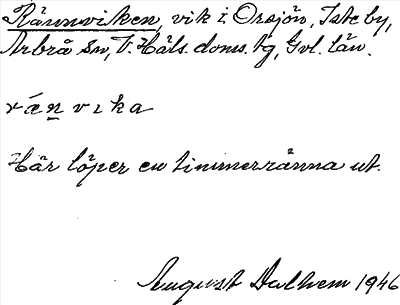 Rännviken, vik i Orsjön, Iste by,
Arbrå sn, V. Häls. doms. tg, Gvl. län.
rǽn̠vika
Här löper en timmerränna ut.
August Dalhem 1946